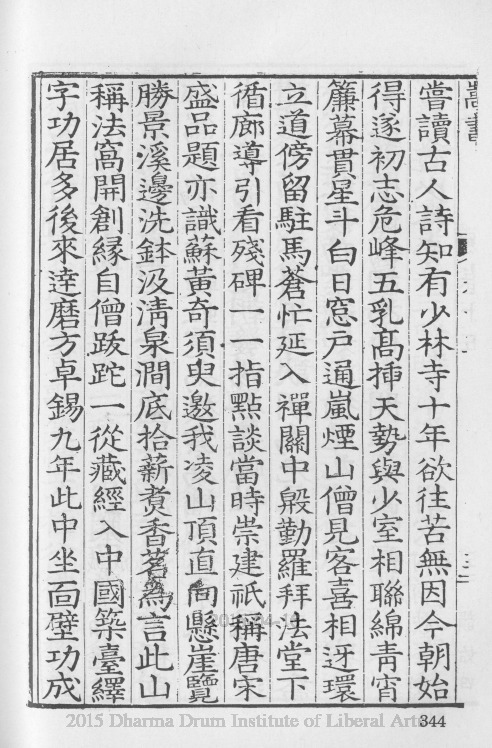 嘗讀古人詩知有少林寺十年欲往苦無因今朝始
得遂初志危峰五乳髙揷天勢與少室相聯綿青宵
簾幕貫星斗白日窓戶通嵐煙山僧見客喜相迓環
立道傍留駐馬蒼忙延入禪關中殷勤羅拜法堂下
循廊導引看殘碑一一指點談當時崇建祇稱唐宋
盛品題亦識蘇黃奇須臾邀我凌山頂直向懸崖覽
勝景溪邊洗鉢汲淸泉澗底拾薪煑香茗爲言此山
稱法窩開創緣自僧跋跎一從藏經入中國築臺繹
字功居多後來逹磨方卓錫九年此中坐面壁功成
2015 Dharma Drum Institute of Liberal Arts
344